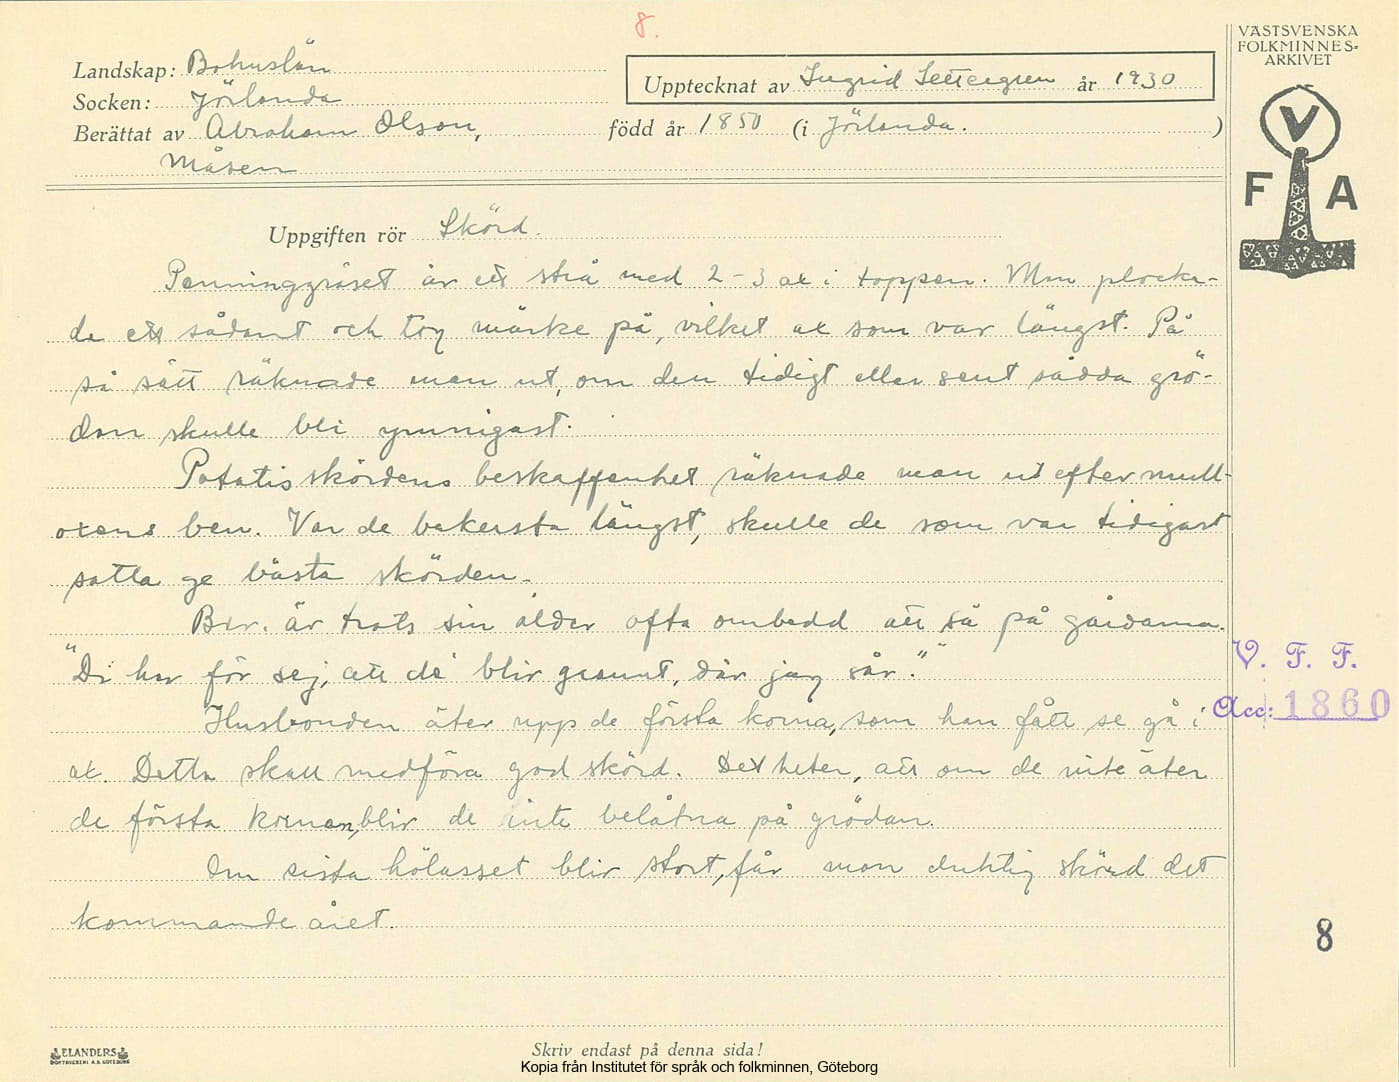 8.
VÄSTSVENSKA
FOLKMINNES-
ARKIVET
Landskap: Bohuslän
Upptecknat av Ingrid Settergren år 1930
Socken: Jörlanda
Berättat av Abraham Olson, född år 1850 (i Jörlanda.)
Måsen
V
F A
Uppgiften rör Skörd.
Penninggräset är ett strå med 2-3 ax i toppen. Man plocka-
de ett sådant och tog märke på, vilket ax som var längst. På
så sätt räknade man ut, om den tidigt eller sent sådda grö-
dan skulle bli ymnigast.
Potatisskördens beskaffenhet räknade man ut efter mull-
oxens ben. Var de bakersta längst, skulle de som var tidigast
satta ge bästa skörden.
Ber. är trots sin ålder ofta ombedd att så på gårdarna.
"Di har för sej, att de' blir grannt, där jag sår."
V. F. F.
Husbonden äter upp de första korna, som han fått se gå i
Acc: 1860
ax. Detta skall medföra god skörd. Det heter, att om de inte äter
de första kornen, blir de inte belåtna på grödan.
Om sista hölasset blir stort, får man duktig skörd det
kommande året.
8
ELANDERS
BOKTRYCKERI A.B. GÖTEBORG
Skriv endast på denna sida!
Kopia från Institutet för språk och folkminnen, Göteborg